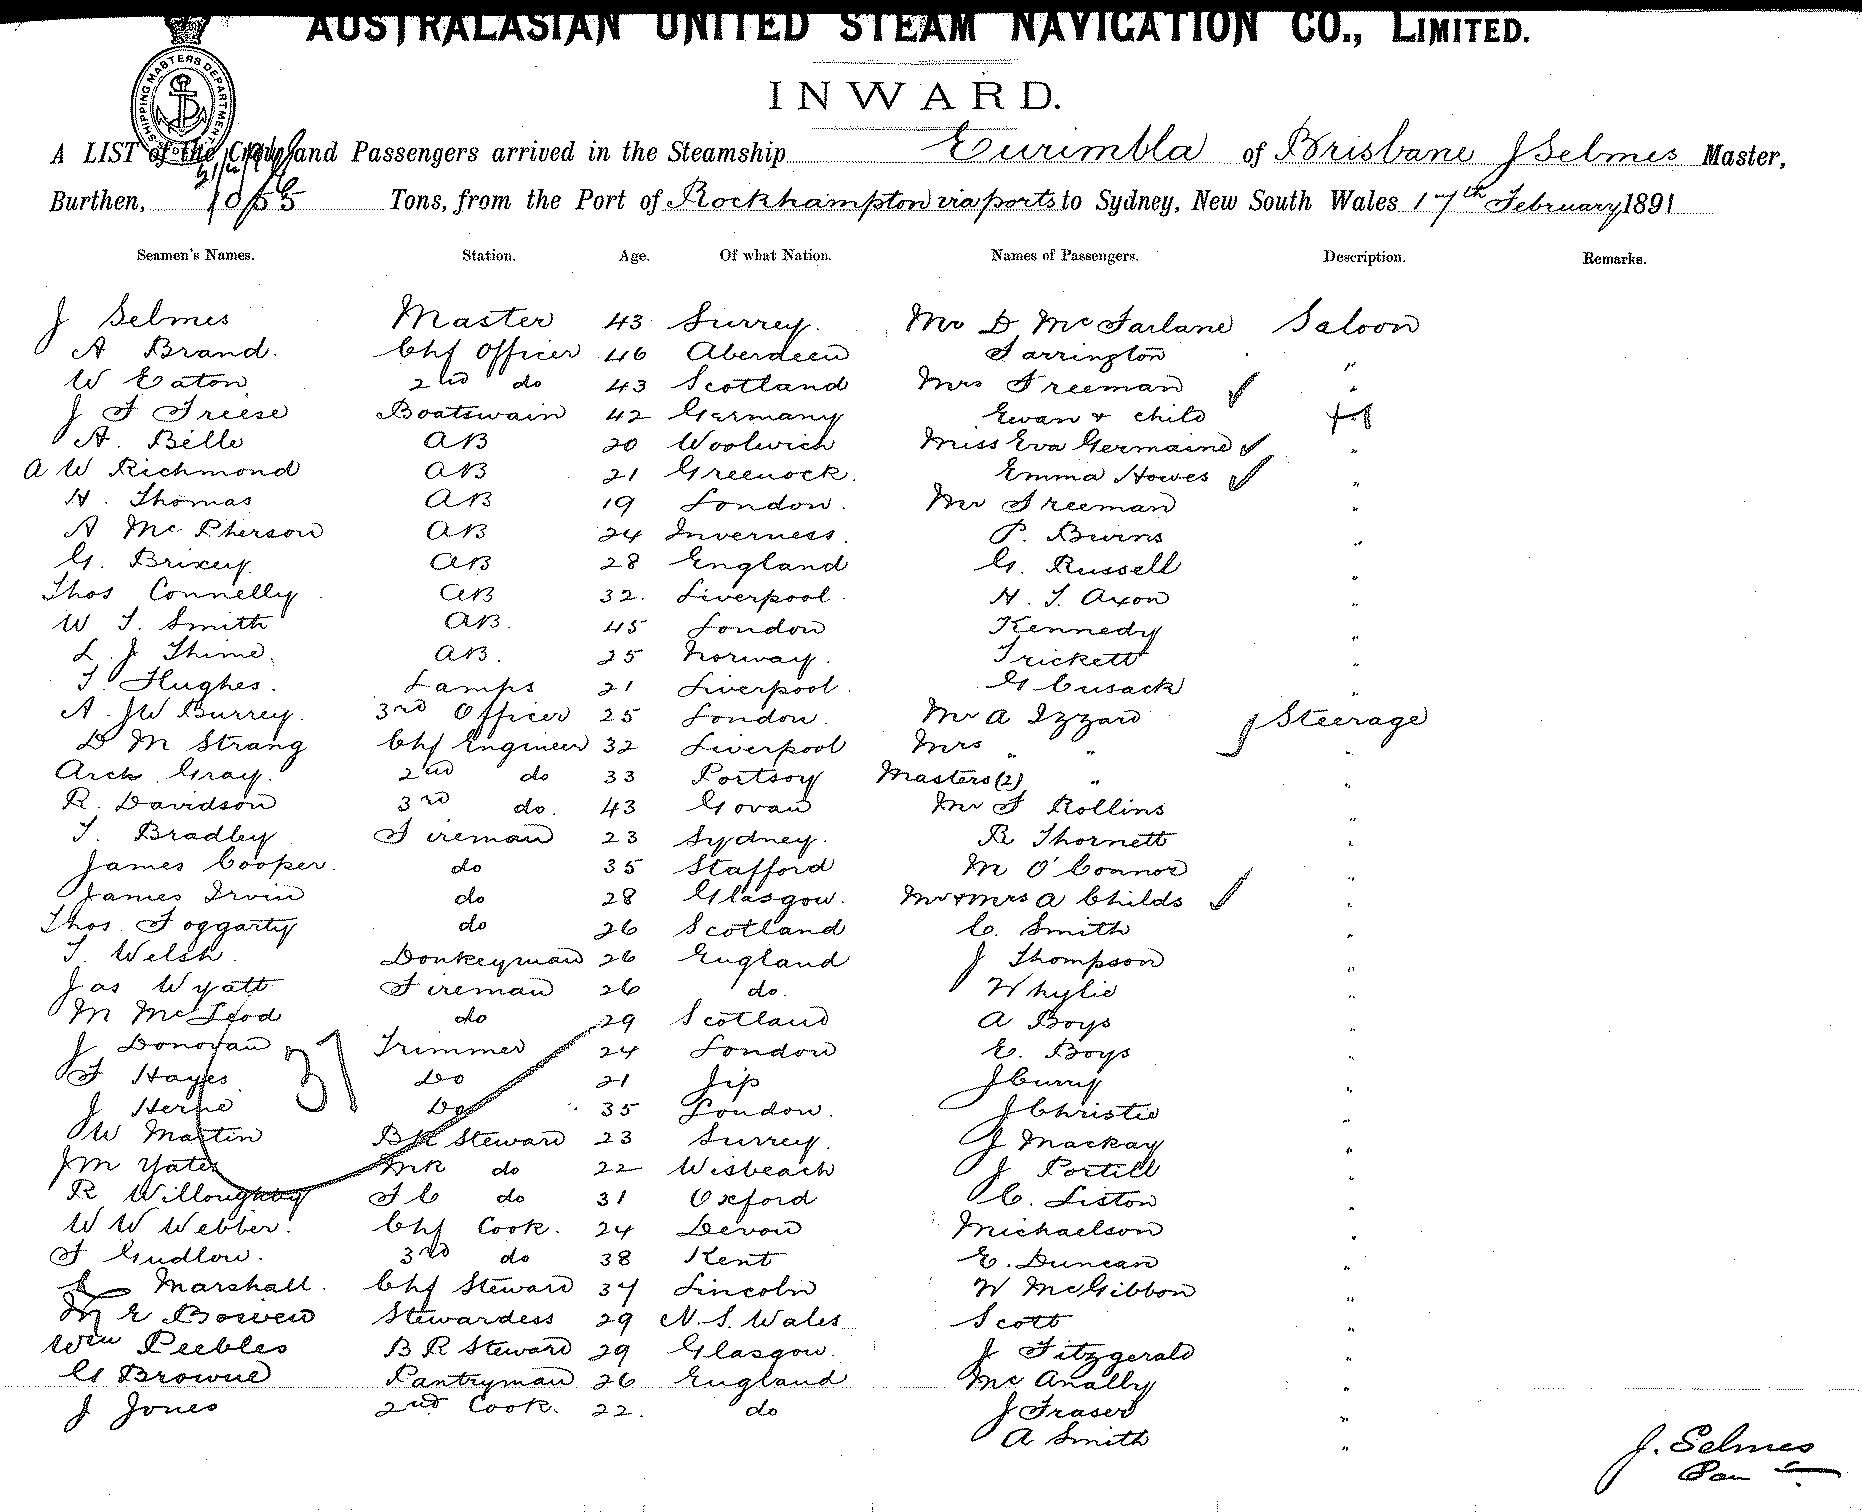 AUSTRALASIAN UNITED STEAM NAVIGATION CO., LIMITED.
SHIPPING MASTERS DEPARTMENT
INWARD.
A LIST of the Crew and Passengers arrived in the Steamship Eurimbla of Brisbane J Selmes Master,
Burthen, 1055 Tons, from the Port of Rockhampton via ports to Sydney, New South Wales 17th February 1891
Seamen's Names. Station. Age. Of what Nation. Names of Passengers. Description. Remarks.
J Selmes Master 43 Surrey. Mr D McFarlane Saloon
A Brand. Chf Officer 46 Aberdeen Farrington "
W Eaton 2nd do 43 Scotland Mrs Freeman "
J F Friese Boatswain 42 Germany Ewan + child
A. Belle AB 20 Woolwich Miss Eva Germaine "
A W Richmond AB 21 Greenock. Emma Howes "
H. Thomas AB 19 London. Mr Freeman "
A McPherson AB 24 Inverness. P. Burns "
G. Brixey. AB 28 England G. Russell "
Thos Connelly AB 32. Liverpool. H. T. Axon "
W T. Smith AB. 45 London Kennedy "
L. J Thime. AB. 25 Norway. Trickett "
T. Hughes. Lamps 21 Liverpool. G Cusack "
A. JW Burrey. 3rd Officer 25 London. Mr A Izzard Steerage
D M Strang Chf Engineer 32 Liverpool Mrs " " "
Arch Gray. 2nd do 33 Portsoy Masters (2) " "
R. Davidson 3rd do. 43 Govan Mr F Rollins "
T. Bradley Fireman 23 Sydney. R Thornett "
James Cooper. do 35 Stafford M O'Connor "
James Irvin do 28 Glasgow. Mr + Mrs A Childs "
Thos Foggarty do 26 Scotland C. Smith "
T. Welsh. Donkeyman 26 England J Thompson "
Jas Wyatt Fireman 26 do. Whylie "
M McLeod do 29 Scotland A Boys "
J Donovan Trimmer 24 London E. Boys "
31
F Hayes Do 21 Jip J Curry "
J Herne Do 35 London. J Christie "
W Martin BR Steward 23 Surrey. J Mackay "
JM Yates MR do 22 Wisbeach J Portill "
R Willoughby FC do 31 Oxford C. Liston "
W W Webber. Chf Cook. 24 Devon Michaelson "
F Gudlow. 3rd do 38 Kent E. Duncan "
Marshall. Chf Steward 34 Lincoln W McGibbon "
M E Bowen Stewardess 29 N.S. Wales Scott "
Wm Peebles BR Steward 29 Glasgow. J Fitzgerald "
G Browne Pantryman 26 England McAnally "
J Jones 2nd Cook. 22. do J Fraser "
A Smith "
J. Selmes